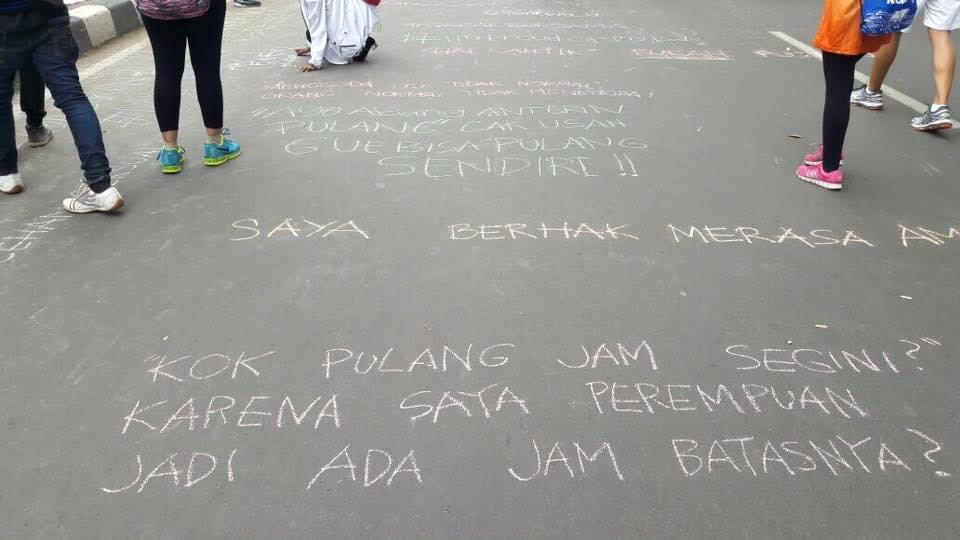 "HAI CANTIK" BUKAN
MENGGODA ITU TIDAK NORMAL
ORANG NORMAL TIDAK MENGGODA!
"AYO ABANG ANTERIN
PULANG" GAK USAH
GUE BISA PULANG
SENDIRI!!
SAYA BERHAK MERASA AM
"KOK PULANG JAM SEGINI?"
KARENA SAYA PEREMPUAN
JADI ADA JAM BATASNYA?